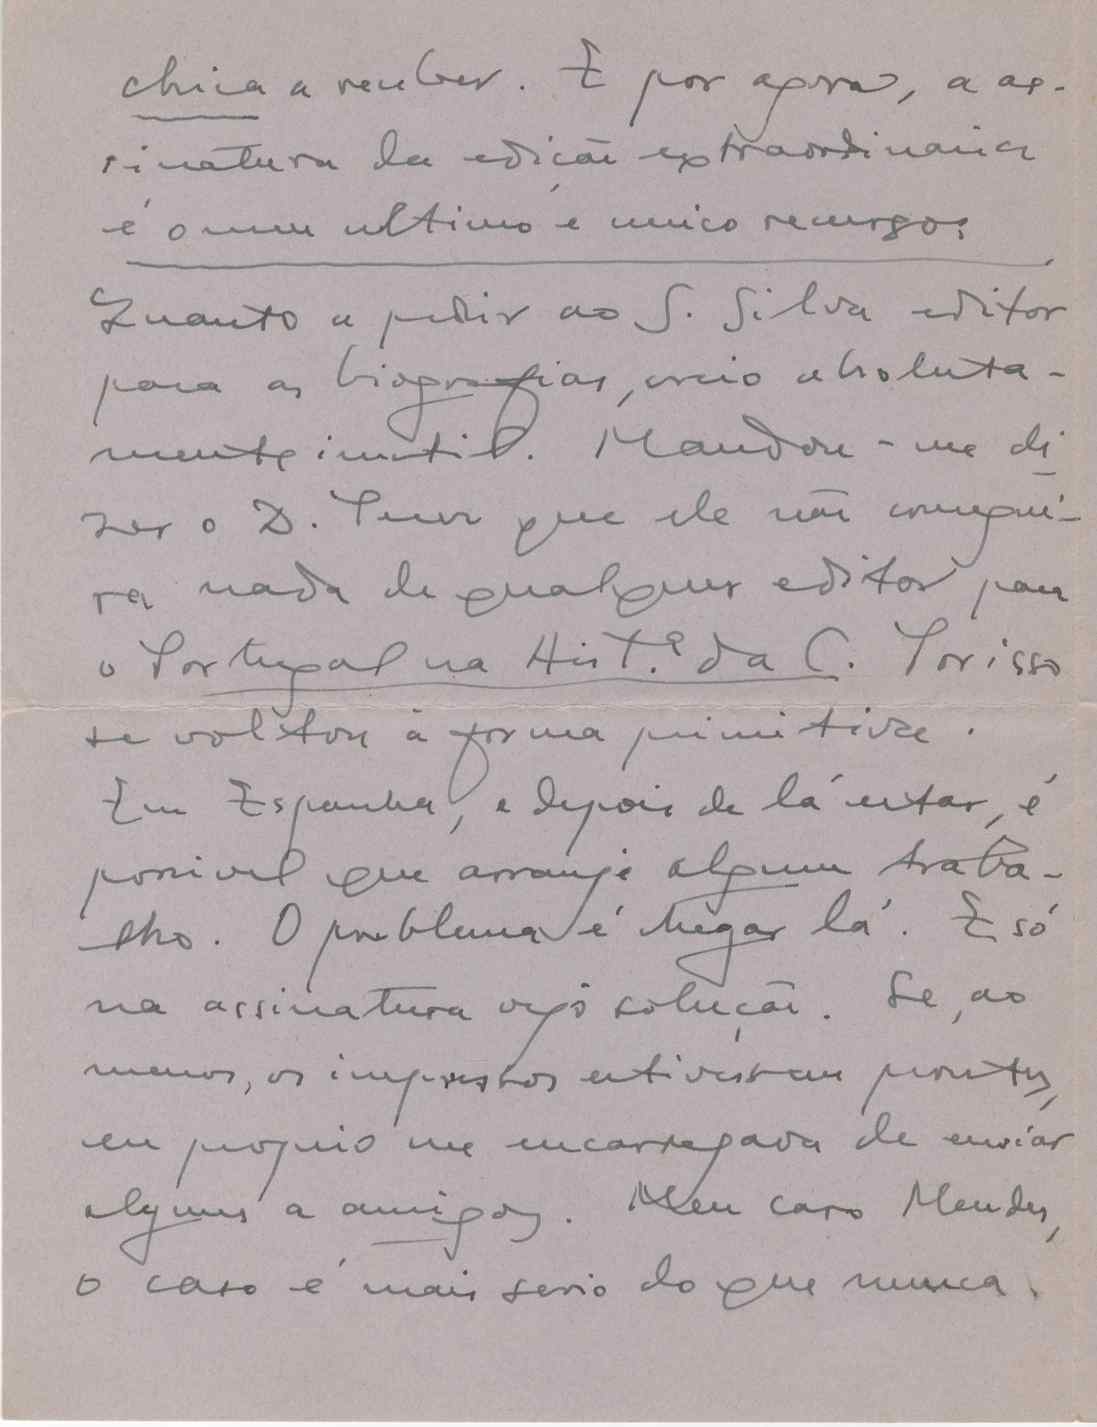 chica a receber. E por agora, a as-
sinatura da edição extraordinaria
é o meu ultimo e unico recurso.
Quanto a pedir ao S. Silva editor
para as biografias, creio absoluta-
mente inutil. Mandou-me di
zer o D. que ele não consegui-
ra nada de qualquer editor para
o Portugal na Hist.ª da C. Por isso
se voltou à forma primitiva.
Em Espanha, e depois de lá estar, é
possivel que arranje algum traba-
lho. O problema é chegar lá. E só
na assinatura vejo solução. Se, ao
menos, os impressos estivessem prontos,
eu proprio me encarregava de enviar
alguns a amigos. Meu caro Mendes,
o caso é mais serio do que nunca.